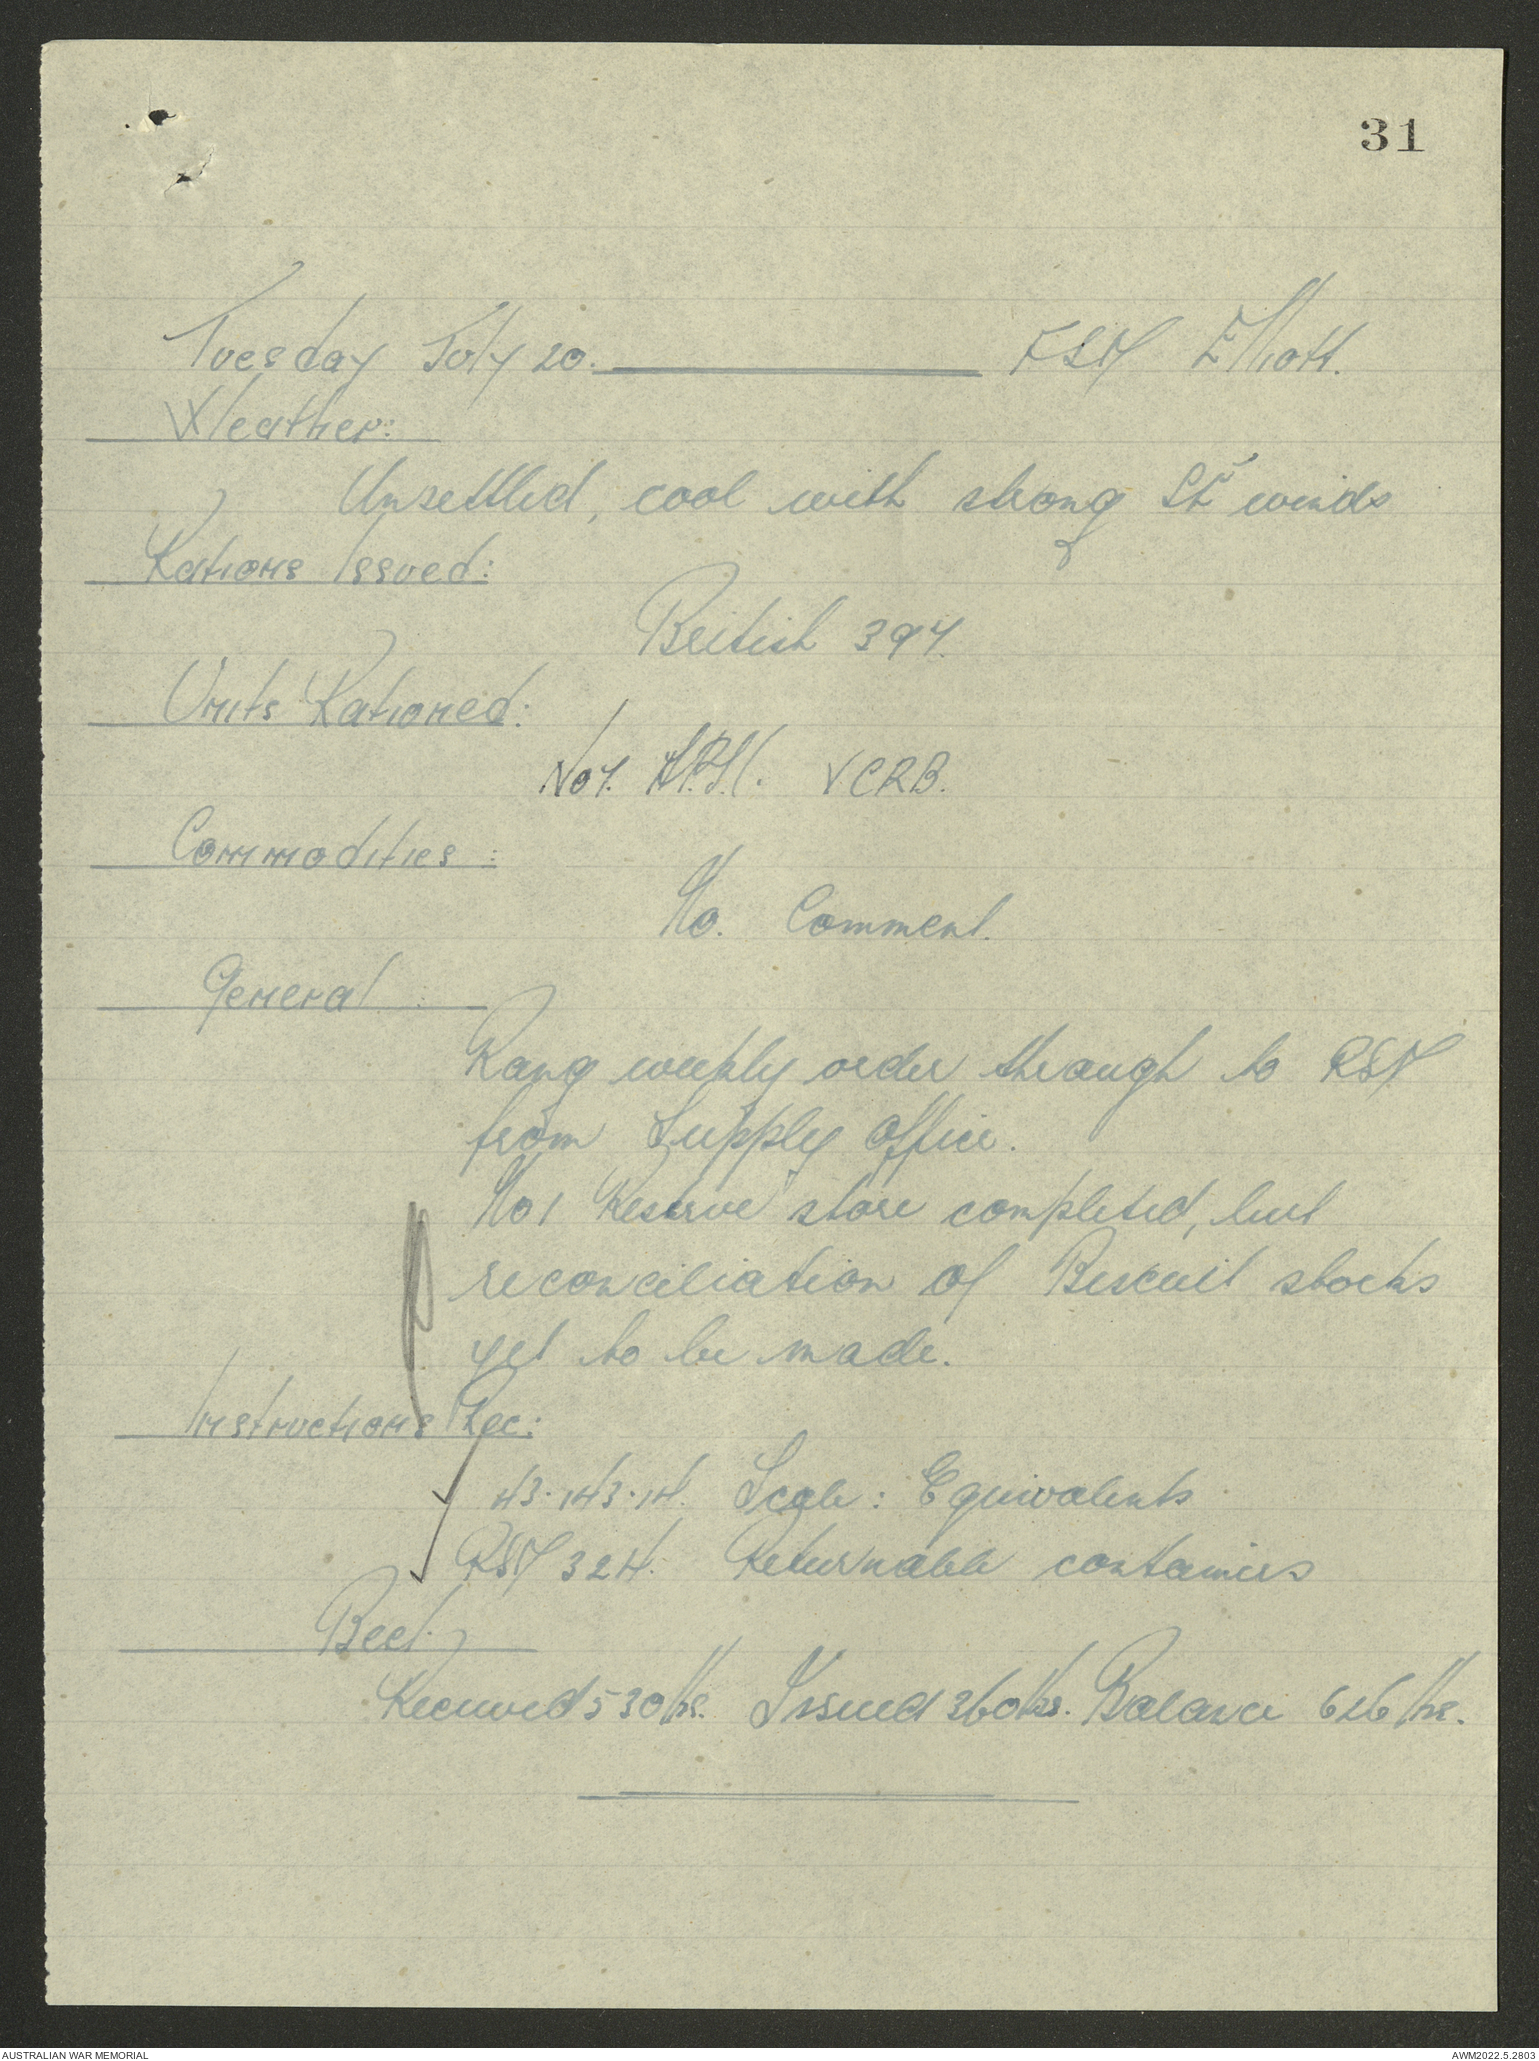 31
Tuesday July 20. FSD Elliott.
Weather:
Unsettled, cool with strong SE winds
Rations Issued:
British 397.
Units Rationed:
No 7. V.CRB.
Commodities:
No. Comment.
General:
Rang weekly order through to RSD
from Supply Office.
No 1 Reserve store completed, but
reconciliation of Biscuit stocks
yet to be made.
Instructions Rec:
43.143.14. Scale: Equivalents
RSD 324. Returnable containers
Beef.
Received 530 lbs. Issued 360 lbs. Balance 626 lbs.
AUSTRALIAN WAR MEMORIAL
AWM2022.5.2803